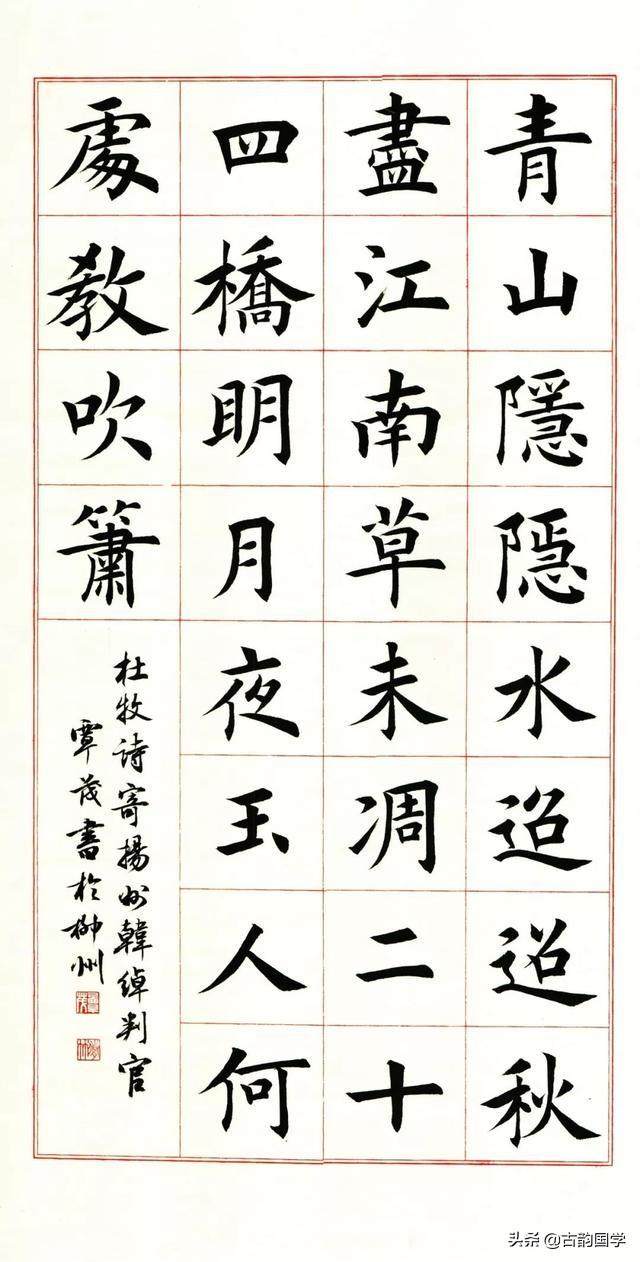 青山隱隱水迢迢秋
盡江南草未凋二十
四橋明月夜玉人何
處教吹簫
杜牧诗寄揚州韓綽判官
覃茂書於柳州
头条@古韵国学